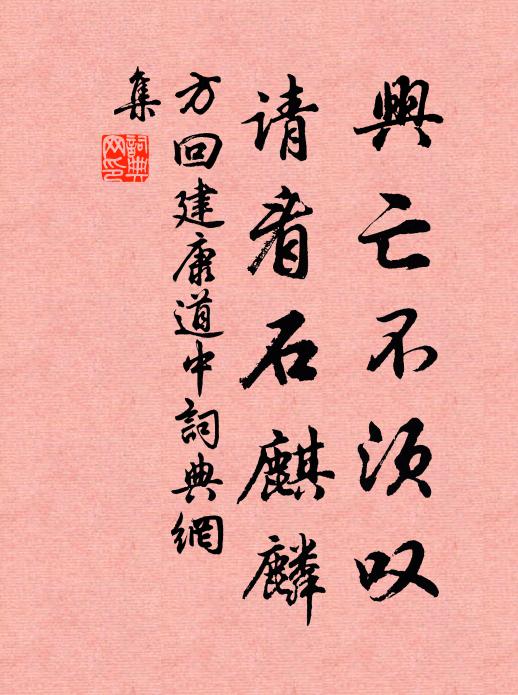 興亡不须叹
请看石麒麟
方回建康道中詞典網
集
詞典
网印